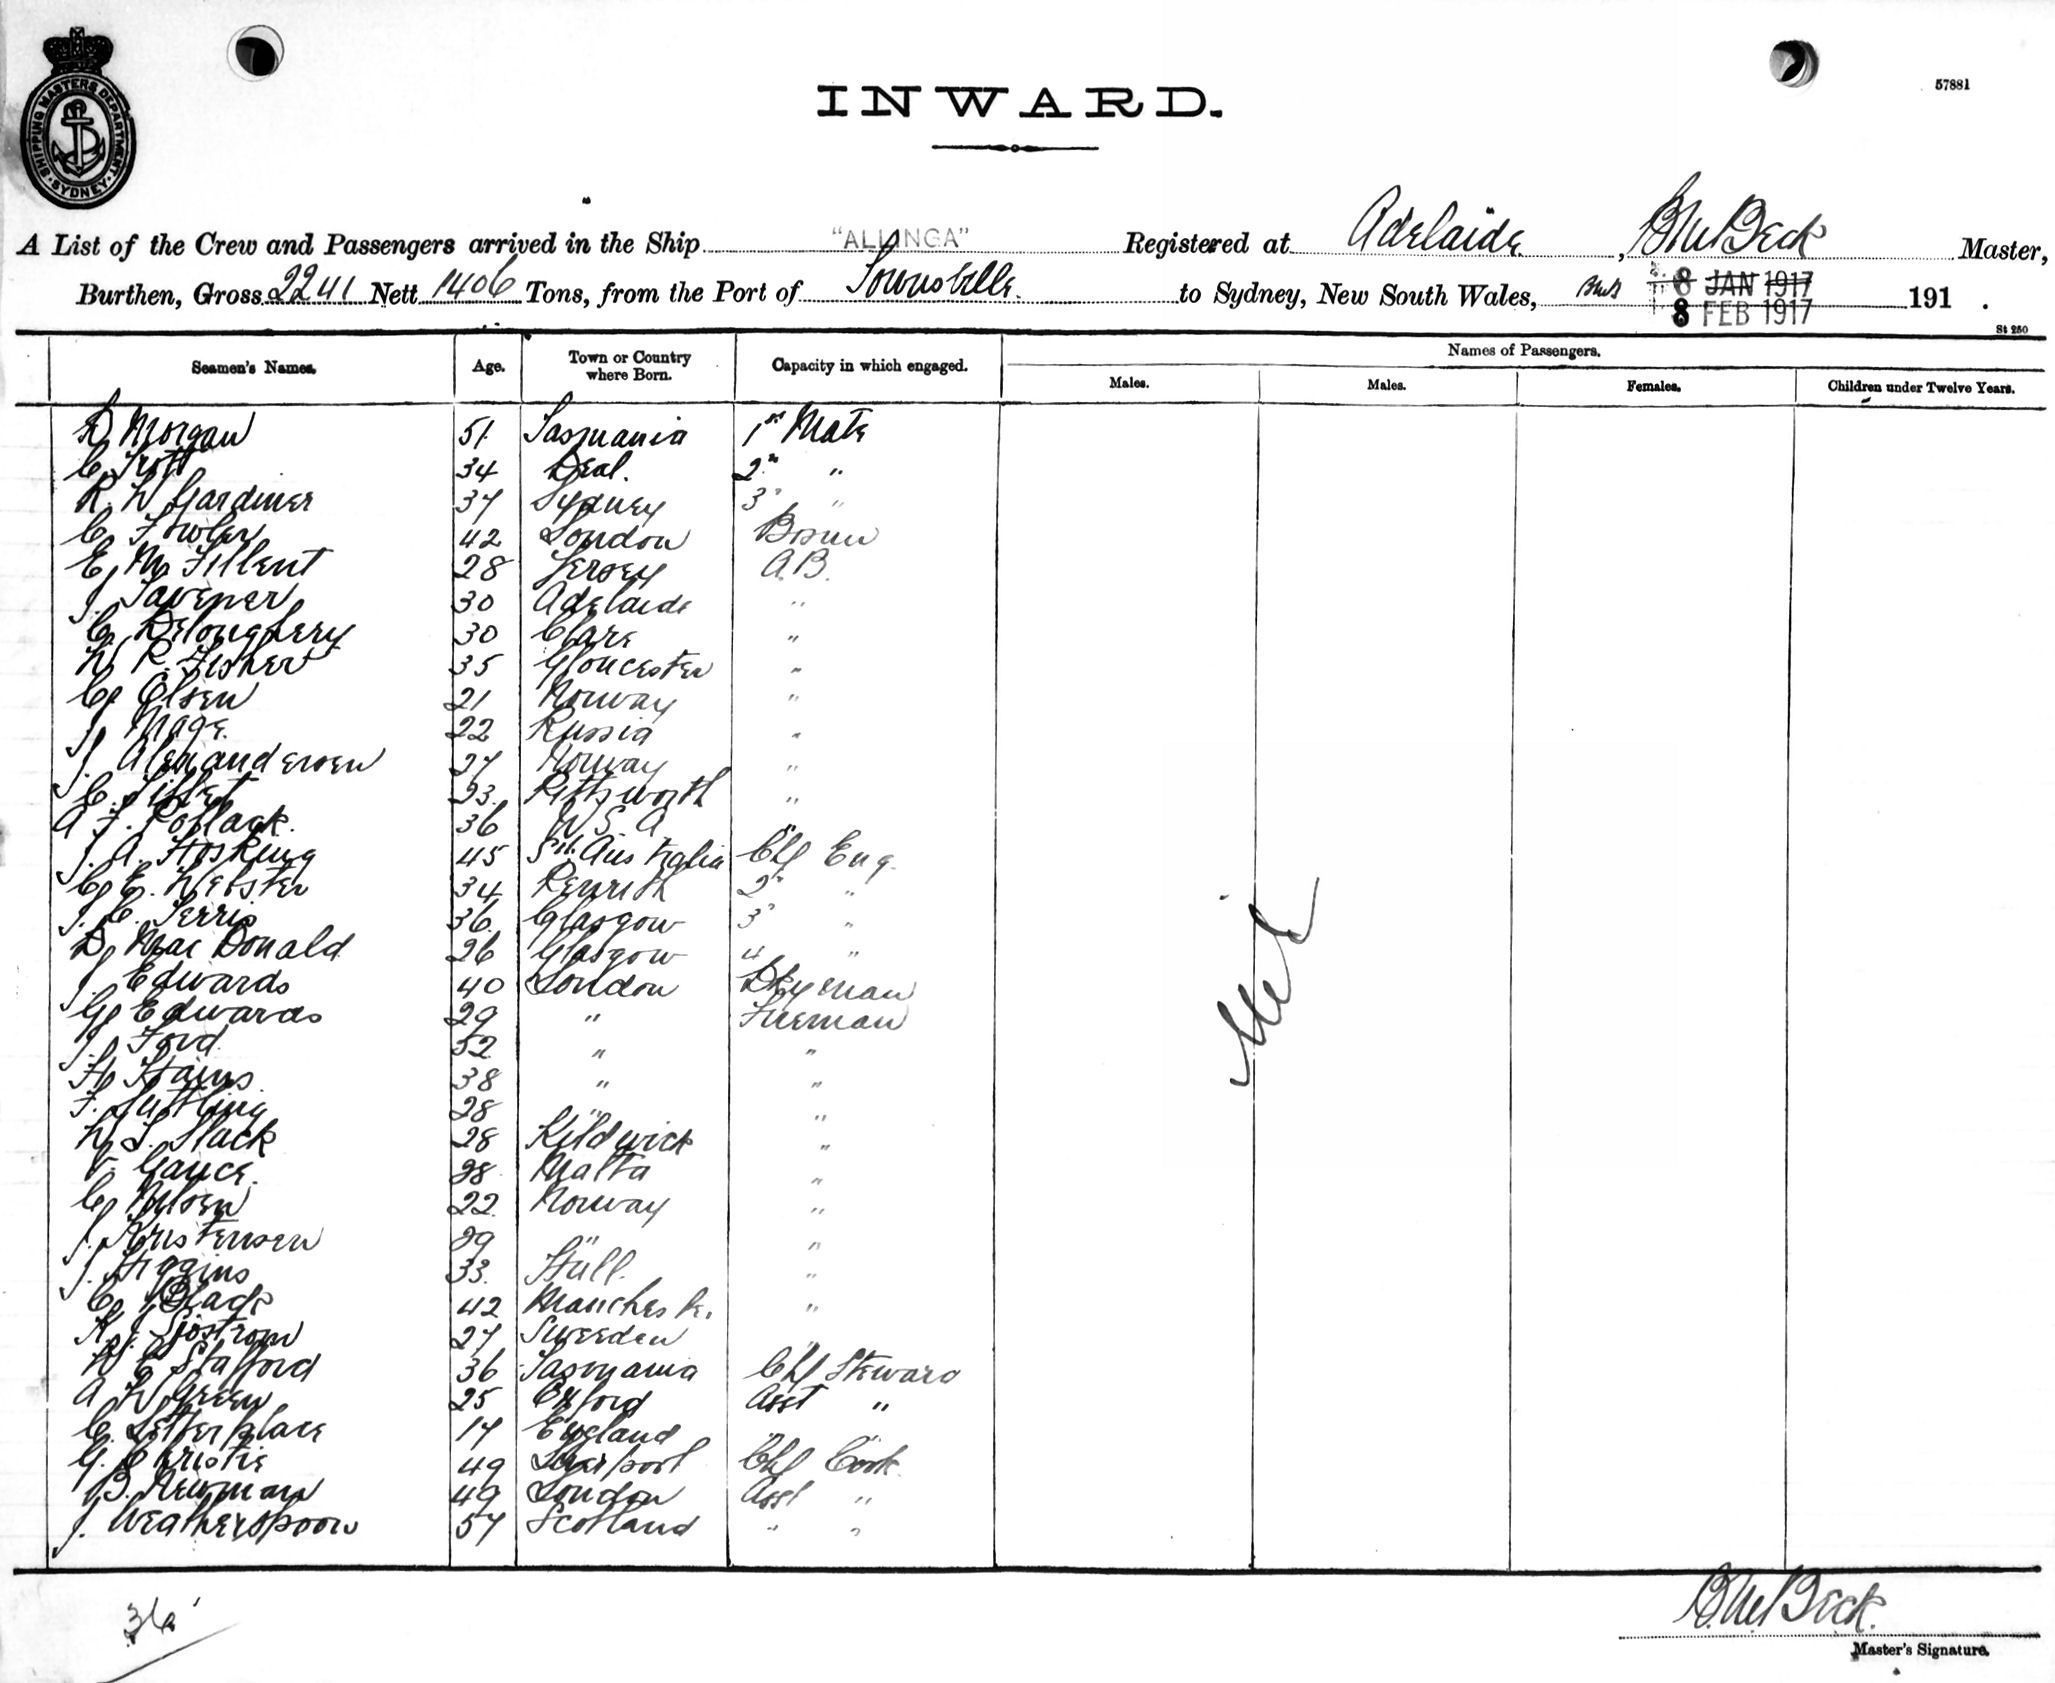 SHIPPING MASTERS DEPARTMENT SYDNEY
57881
INWARD.
A List of the Crew and Passengers arrived in the Ship "ALLINGA" Registered at Adelaide, Master,
Burthen, Gross 2241 Nett 1406 Tons, from the Port of Townsville. to Sydney, New South Wales, 8 JAN 1917 191 .
8 FEB 1917
St 250
Seamen's Names. Age. Town or Country where Born. Capacity in which engaged. Names of Passengers.
Males. Males. Females. Children under Twelve Years.
D Morgan 51 Tasmania 1st Mate
C. Trott 34 Deal. 2nd "
R. W Gardiner 37 Sydney 3 "
C Fowler 42 London Bosun
E M Fillent 28 Jersey A.B.
J. Tavener 30 Adelaide "
C Deloughery 30 Clare "
W R. Fisher 35 Gloucester "
C Olsen 21 Norway "
J Mage. 22 Russia "
J. Alexandersen 27 Norway "
C. 23 Pittsworth "
A F. Pollack. 36 U S A "
J. A. Hosking 45 Sth Australia Chf Eng.
C E. Webster 34 Penrith 2 "
J. C. Ferris 36 Glasgow 3 "
D Mac Donald 26 Glasgow 4 "
J Edwards 40 London Dkyman
G Edwards 29 " Fireman
J. Ford 52 " "
H Hains 38 " "
F. Suttling 28 " "
W S. Slack 28 Kildwick "
V. Gauce. 28 Malta "
C Nilsen 22 Norway "
J. Kristensen 29 " "
J. Higgins 33 Hull. "
C Black 42 Manchester. "
K J Sjostrom 27 Sweeden "
W E Stafford 36 Tasmania Chf Steward
A W Green 25 Oxford Asst "
C. Setterplace 17 England "
G. Christie 49 Liverpool Chf Cook
B. Newman 49 London Asst "
J. Weatherspoon 57 Scotland " "
36
Master's Signature.